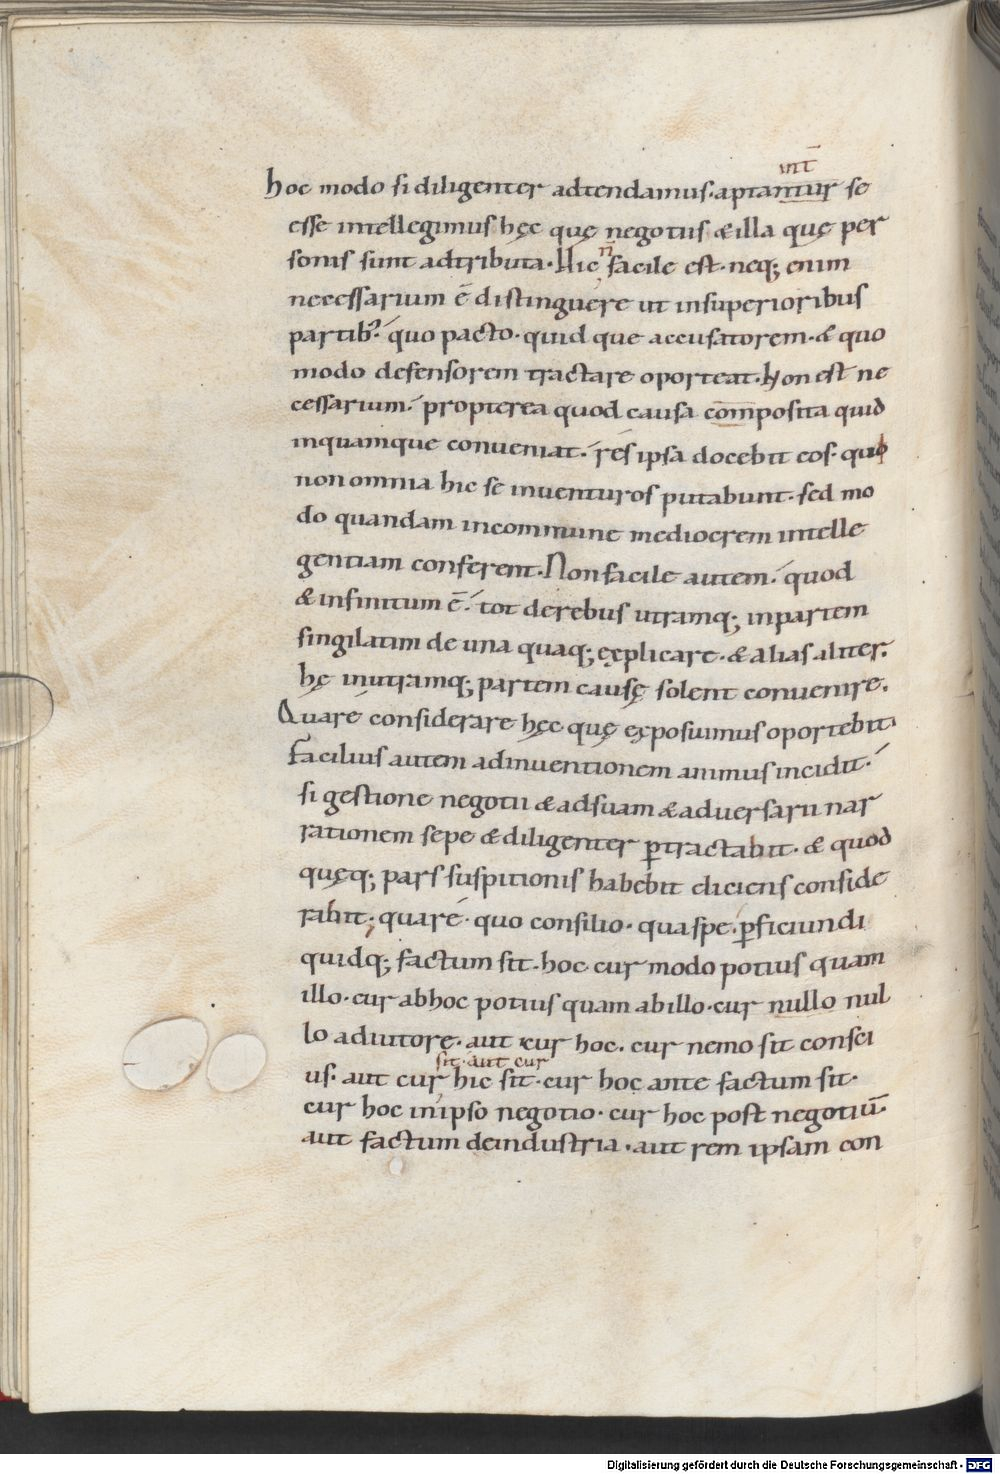 int̄
hoc modo si diligenter adtendamus·aptantur se
esse intellegimus hęc quę negotiis & illa quę per
sonis sunt adtributa·Hic n̄ facile est·neq; enim
necessarium ē distinguere ut insuperioribus
partib; quo pacto·quid que accusatorem·& quo
modo defensorem tractare oporteat·Non est ne
cessarium· propterea quod causa composita quid
inquamque conueniat· res ipsa docebit eos·quo
non omnia hic se inuenturos putabunt·sed mo
do quandam incommune mediocrem intelle
gentiam conferent·Non facile autem· quod
& infinitum ē· tot derebus utramq; inpartem
singilatim de una quaq; explicare·& alias aliter·
hę inutramq; partem causę solent conuenire·
Quare considerare hęc quę exposuimus oportebit·
Facilius autem adinuentionem animus incidit·
si gestione negotii & adsuam & aduersarii nar
rationem sepe & diligenter ꝑtractabit·& quod
quęq; pars suspitionis habebit eliciens conside
rabit; quare·quo consilio·qua spe·ꝑficiundi
quidq; factum sit·hoc·cur modo potius quam
illo·cur abhoc potius quam abillo·cur nullo nul
lo adiutore·aut cur hoc·cur nemo sit consci
sit·aut cur
us·aut cur hic sit·cur hoc ante factum sit·
cur hoc inipso negotio·cur hoc post negotiū·
aut factum deindustria·aut rem ipsam con
Digitalisierung gefördert durch die Deutsche Forschungsgemeinschaft - DFG